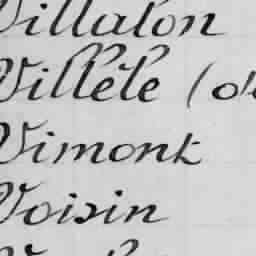 Villalon
Villèle (de
Vimont
Voisin